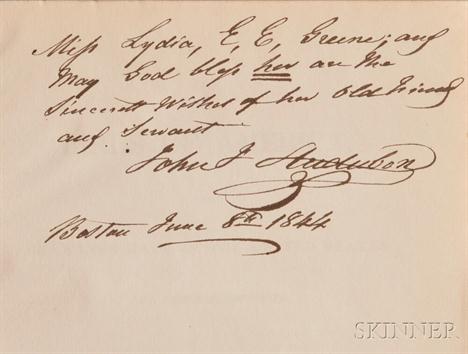 Miss Lydia, E, E, Greene; and
May God bless her are the
Sincerest Wishes of her Old friend
and Servant
John J Audubon
Boston June 8th 1844
SKINNER